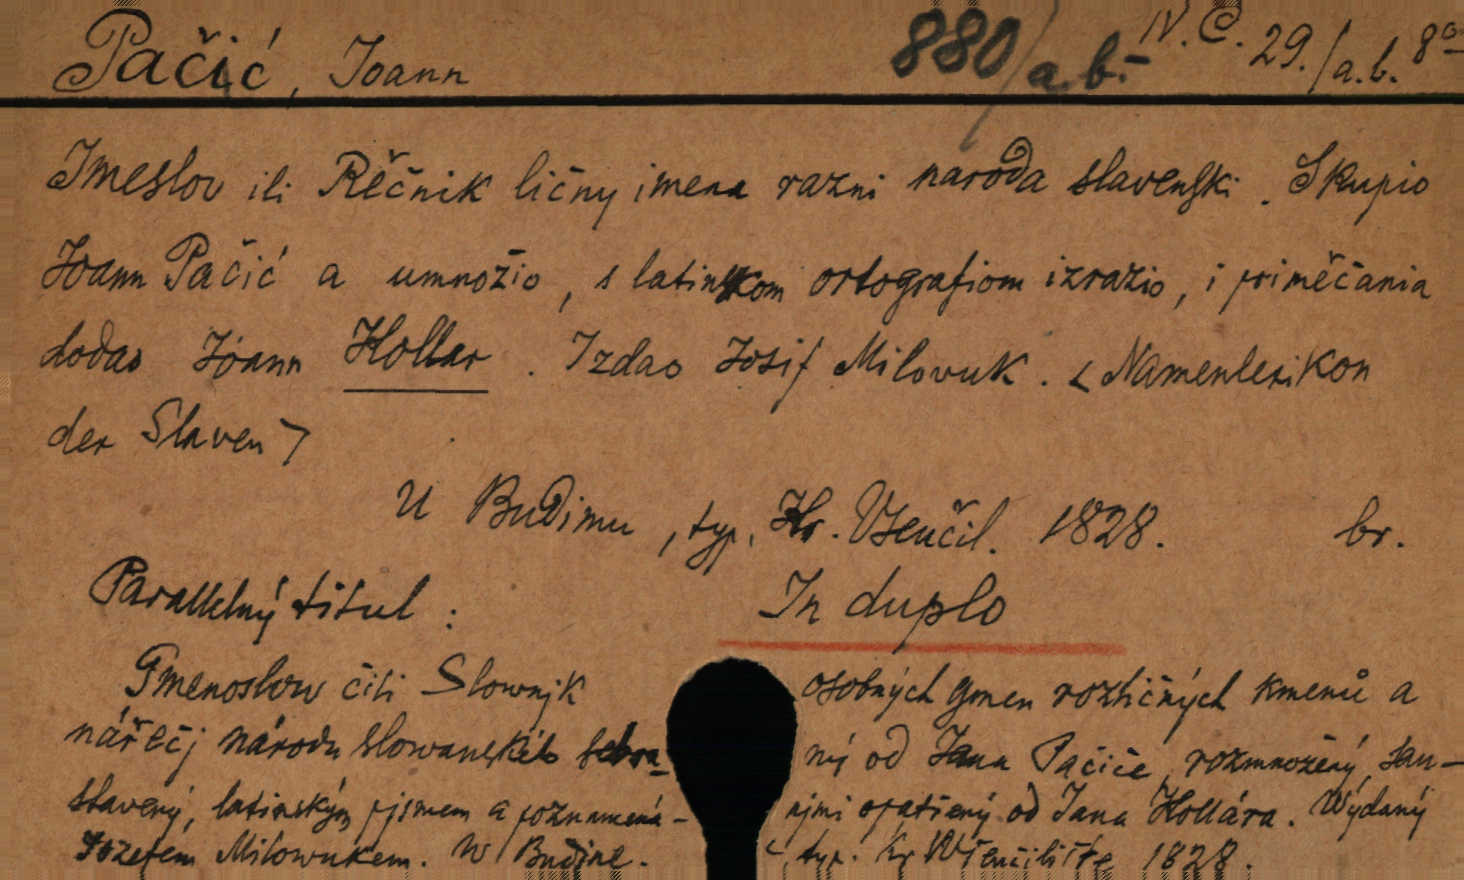 Pačić, Joann 880/a.b.- IV. C. 29./a.b. 8°
Imeslov ili Rěčnik ličny imena razni naroda slavenski. Skupio
Joann Pačić a umnožio, s latinskom ortografiom izrazio, i priměčania
dodao Jóann Kollar. Izdao Josif Milovuk. <Namenlexikon
der Slaven>
U Budimu, typ. Kr. Vseučil. 1828. br.
Parallelný titul: In duplo
Gmenoslow čili Slownjk osobných gmen rozličných kmenů a
nářečj národu slowanského sebra- ný od Jana Pačiče, rozmnožený, sau-
stavený, latinským pjsmem a poznamená- njmi opatřený od Jana Kollára. Wydaný
Jozefem Milowukem. W Budjne. typ. kr. Wšeučiliště 1828.